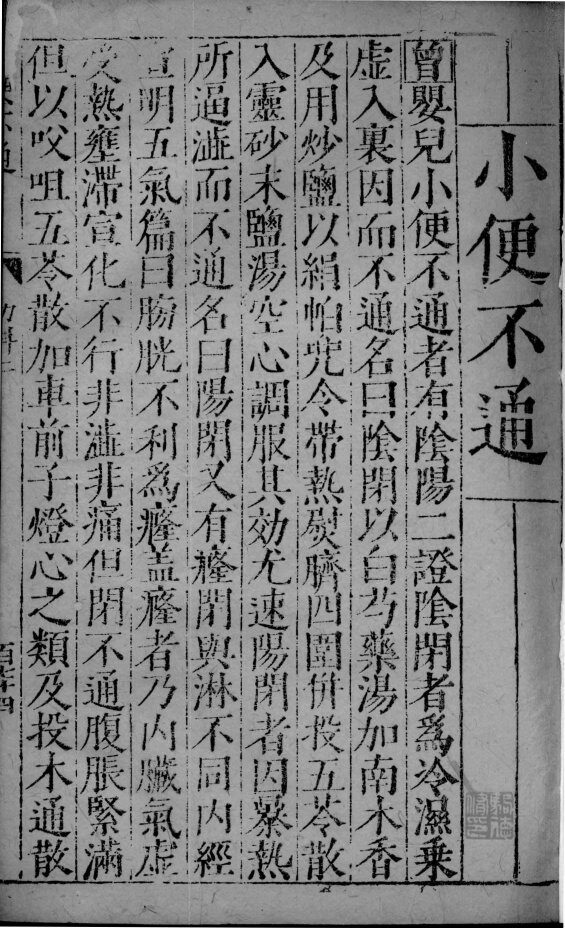 小便不通
曾嬰兒小便不通者有陰陽二證陰閉者爲冷濕乗
虛入裏因而不通名曰陰閉以白芍藥湯加南木香
及用炒鹽以絹帕兠令帶熱熨臍四圍併投五苓散
入靈砂末鹽湯空心調服其効尤速陽閉者因暴熱
所逼澁而不通名曰陽閉又有癃閉與淋不同内經
宣明五氣篇曰膀胱不利爲癃盖癃者乃内臟氣虛
受熱壅滯宣化不行非澁非痛但閉不通腹脹緊滿
但以㕮咀五苓散加車前子燈心之類及投木通散